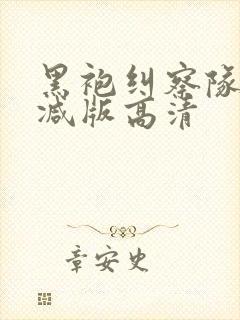 黑袍纠察队
减版高清
章安史